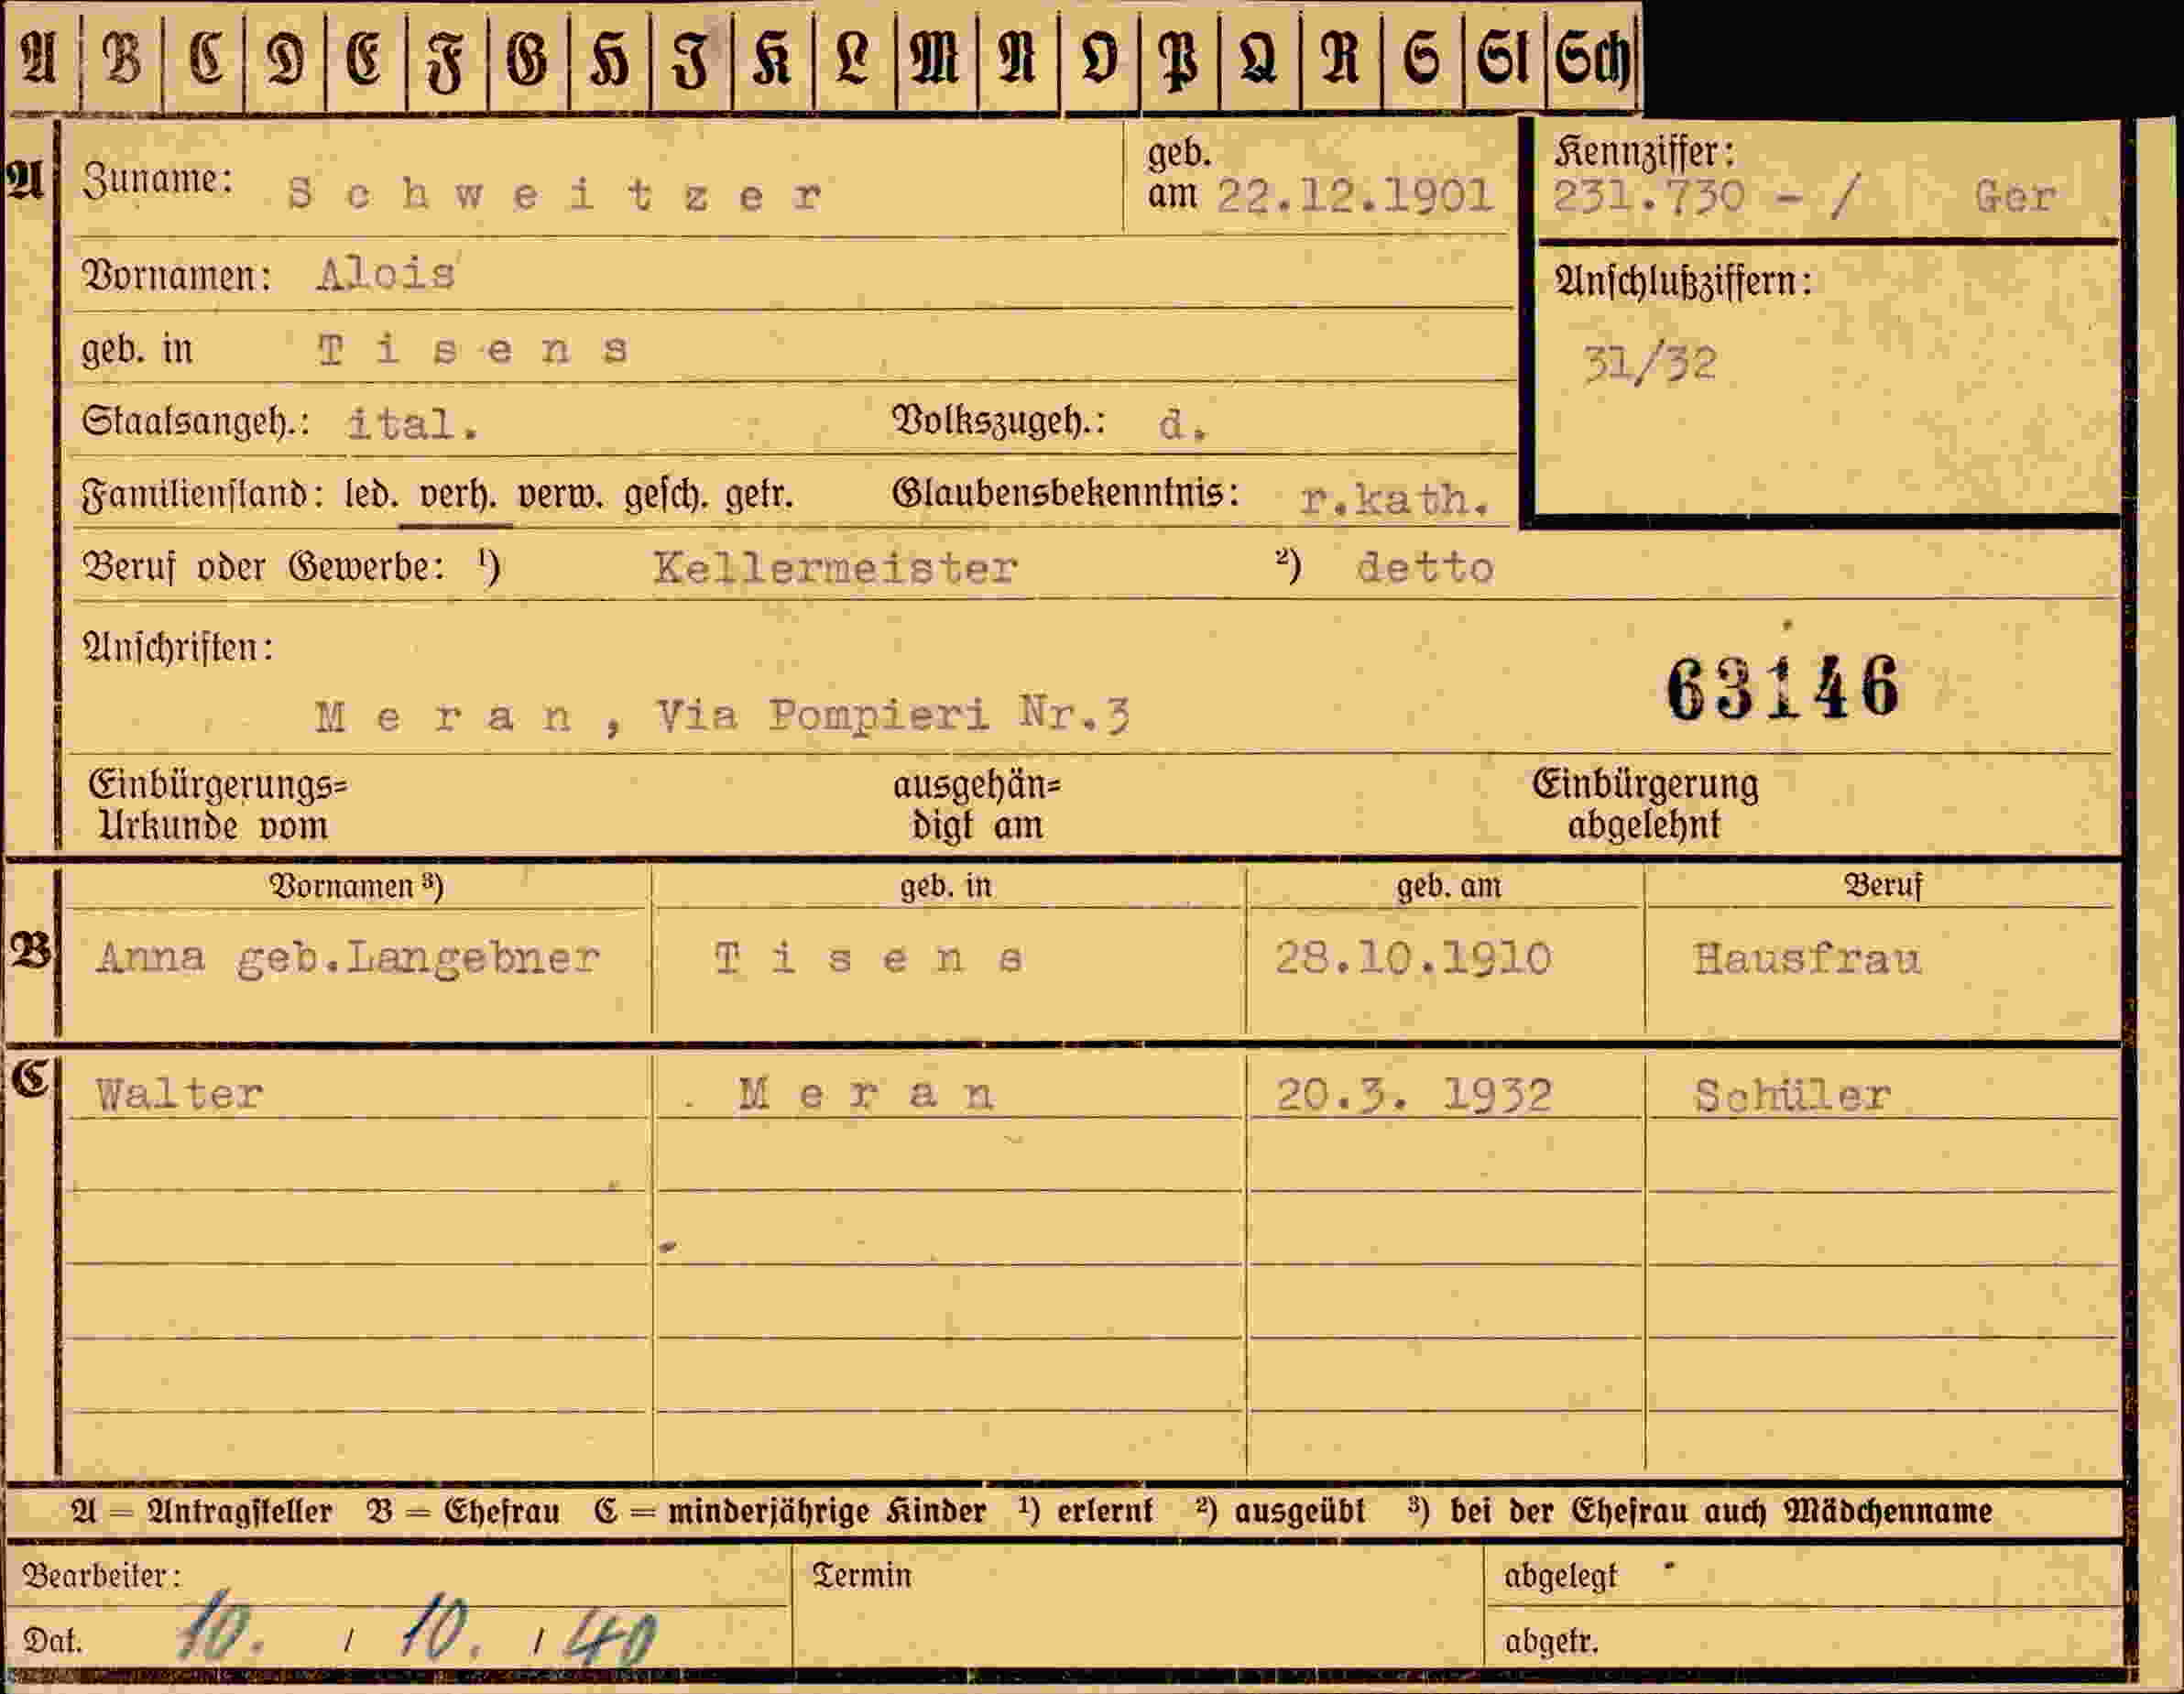 A B C D E F G H I K L M N O P Q R S St Sch
A Zuname: Schweitzer geb. am 22.12.1901 Kennziffer: 231.730 - / Ger
Vornamen: Alois Anschlußziffern:
geb. in Tisens 31/32
Staatsangeh.: ital. Volkszugeh.: d.
Familienstand: led. verh. verw. gesch. getr. Glaubensbekenntnis: r.kath.
Beruf oder Gewerbe: ¹) Kellermeister ²) detto
Anschriften: 63146
Meran, Via Pompieri Nr.3
Einbürgerungs= ausgehän= Einbürgerung
Urkunde vom digt am abgelehnt
Vornamen ³) geb. in geb. am Beruf
B Anna geb.Langebner Tisens 28.10.1910 Hausfrau
C Walter Meran 20.3. 1932 Schüler
A = Antragsteller B = Ehefrau C = minderjährige Kinder ¹) erlernt ²) ausgeübt ³) bei der Ehefrau auch Mädchenname
Bearbeiter: Termin abgelegt
Dat. 10. / 10. / 40 abgetr.